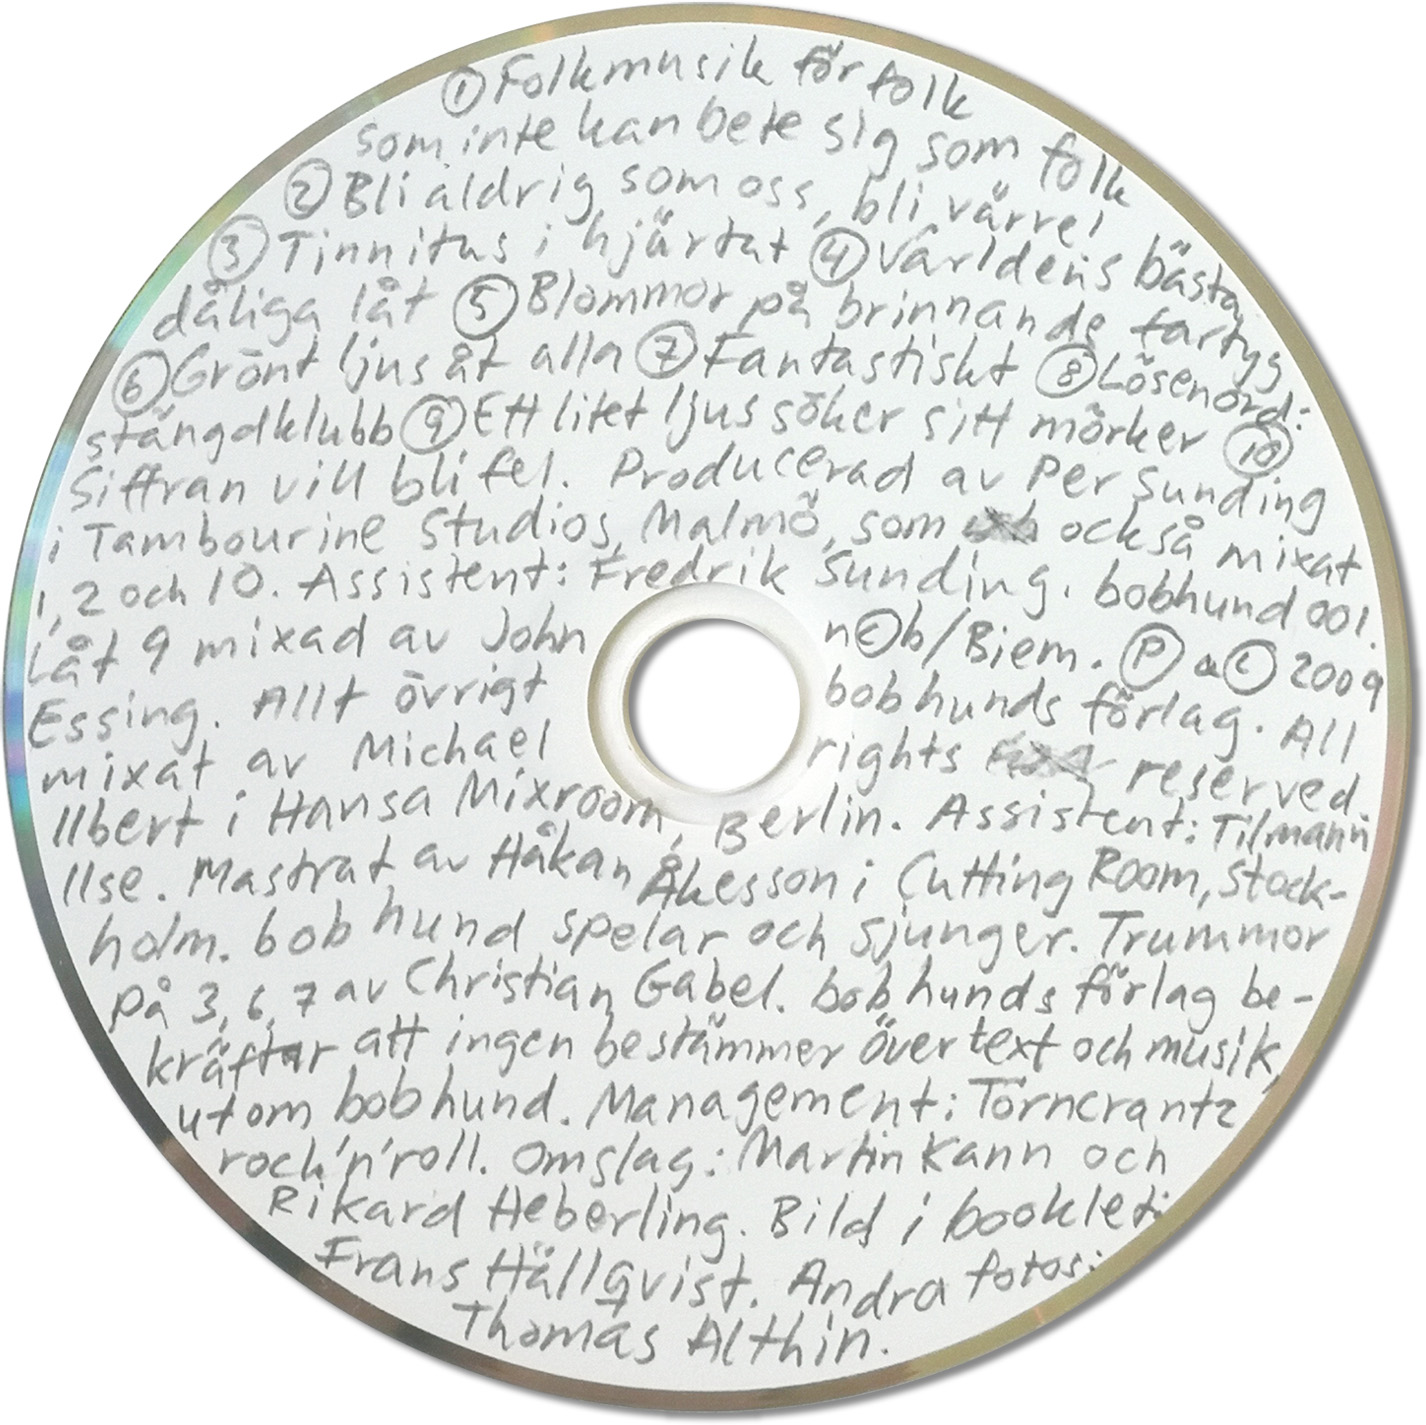 ① Folkmusik för folk
som inte kan bete sig som folk
② Bli aldrig som oss, bli värre!
③ Tinnitus i hjärtat ④ Världens bästa
dåliga låt ⑤ Blommor på brinnande fartyg
⑥ Grönt ljus åt alla ⑦ Fantastiskt ⑧ Lösenord:
stängdklubb ⑨ Ett litet ljus söker sitt mörker ⑩
Siffran vill bli fel. Producerad av Per Sunding
i Tambourine Studios, Malmö, som också mixat
1, 2 och 10. Assistent: Fredrik Sunding. bobhund 001.
Låt 9 mixad av John n©b/Biem. Ⓟ & © 2009
Essing. Allt övrigt bobhunds förlag. All
mixat av Michael rights reserved.
Ilbert i Hansa Mixroom, Berlin. Assistent: Tilmann
Ilse. Mastrat av Håkan Åkesson i Cutting Room, Stock-
holm. bob hund spelar och sjunger. Trummor
på 3, 6, 7 av Christian Gabel. bob hunds förlag be-
kräftar att ingen bestämmer över text och musik,
utom bob hund. Management: Törncrantz
rock'n'roll. Omslag: Martin Kann och
Rikard Heberling. Bild i booklet:
Frans Hällqvist. Andra fotos:
Thomas Althin.